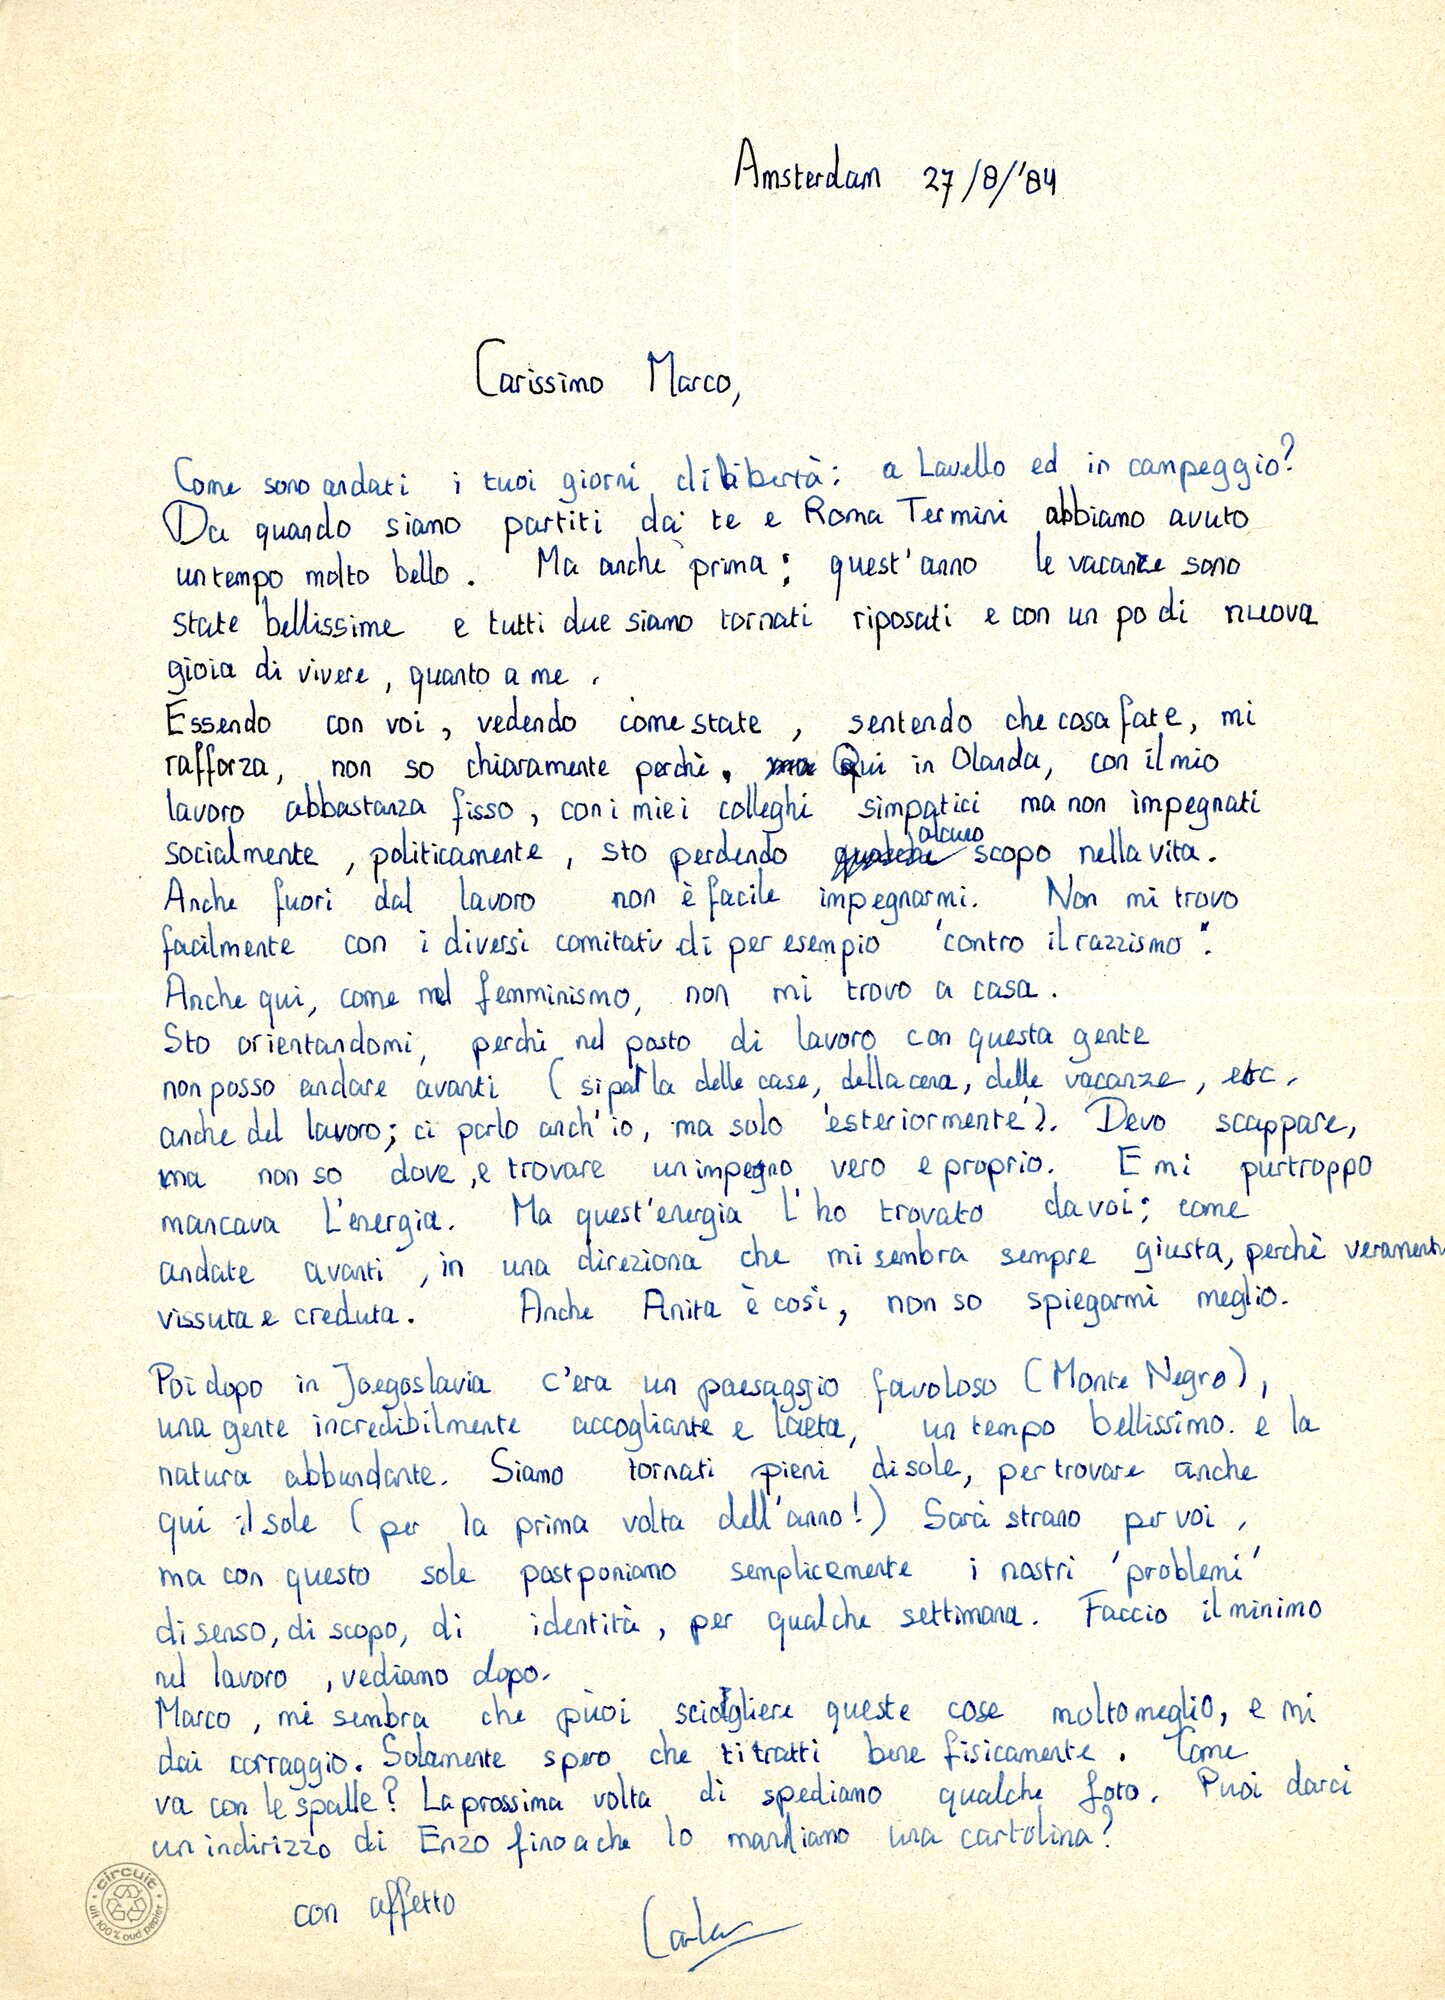 Amsterdam 27/8/'84
Carissimo Marco,
Come sono andati i tuoi giorni di libertà: a Lavello ed in campeggio?
Da quando siamo partiti da te e Roma Termini abbiamo avuto
un tempo molto bello. Ma anche prima: quest'anno le vacanze sono
state bellissime e tutti due siamo tornati riposati e con un po di nuova
gioia di vivere, quanto a me.
Essendo con voi, vedendo come state, sentendo che cosa fate, mi
rafforza, non so chiaramente perchè. Qui in Olanda, con il mio
lavoro abbastanza fisso, con i miei colleghi simpatici ma non impegnati
socialmente, politicamente, sto perdendo alcuno scopo nella vita.
Anche fuori dal lavoro non è facile impegnarmi. Non mi trovo
facilmente con i diversi comitati di per esempio 'contro il razzismo".
Anche qui, come nel femminismo, non mi trovo a casa.
Sto orientandomi, perchè nel posto di lavoro con questa gente
non posso andare avanti (si parla delle case, della cena, delle vacanze, etc.
anche del lavoro; ci parlo anch'io, ma solo 'esteriormente'). Devo scappare,
ma non so dove, e trovare un impegno vero e proprio. E mi purtroppo
mancava l'energia. Ma quest'energia l'ho trovato da voi; come
andate avanti, in una direziona che mi sembra sempre giusta, perchè veramente
vissuta e creduta. Anche Anita è così, non so spiegarmi meglio.
Poi dopo in Joegoslavia c'era un paesaggio favoloso (Monte Negro),
una gente incredibilmente accogliante e laeta, un tempo bellissimo. e la
natura abbundante. Siamo tornati pieni di sole, per trovare anche
qui il sole (per la prima volta dell'anno!) Sarà strano per voi,
ma con questo sole postponiamo semplicemente i nostri 'problemi'
di senso, di scopo, di identità, per qualche settimana. Faccio il minimo
nel lavoro, vediamo dopo.
Marco, mi sembra che puoi sciogliere queste cose molto meglio, e mi
dai corraggio. Solamente spero che ti tratti bene fisicamente. Come
va con le spalle? La prossima volta di spediamo qualche foto. Puoi darci
un indirizzo di Enzo fino a che lo mandiamo una cartolina?
con affetto
circuit
uit 100% oud papier